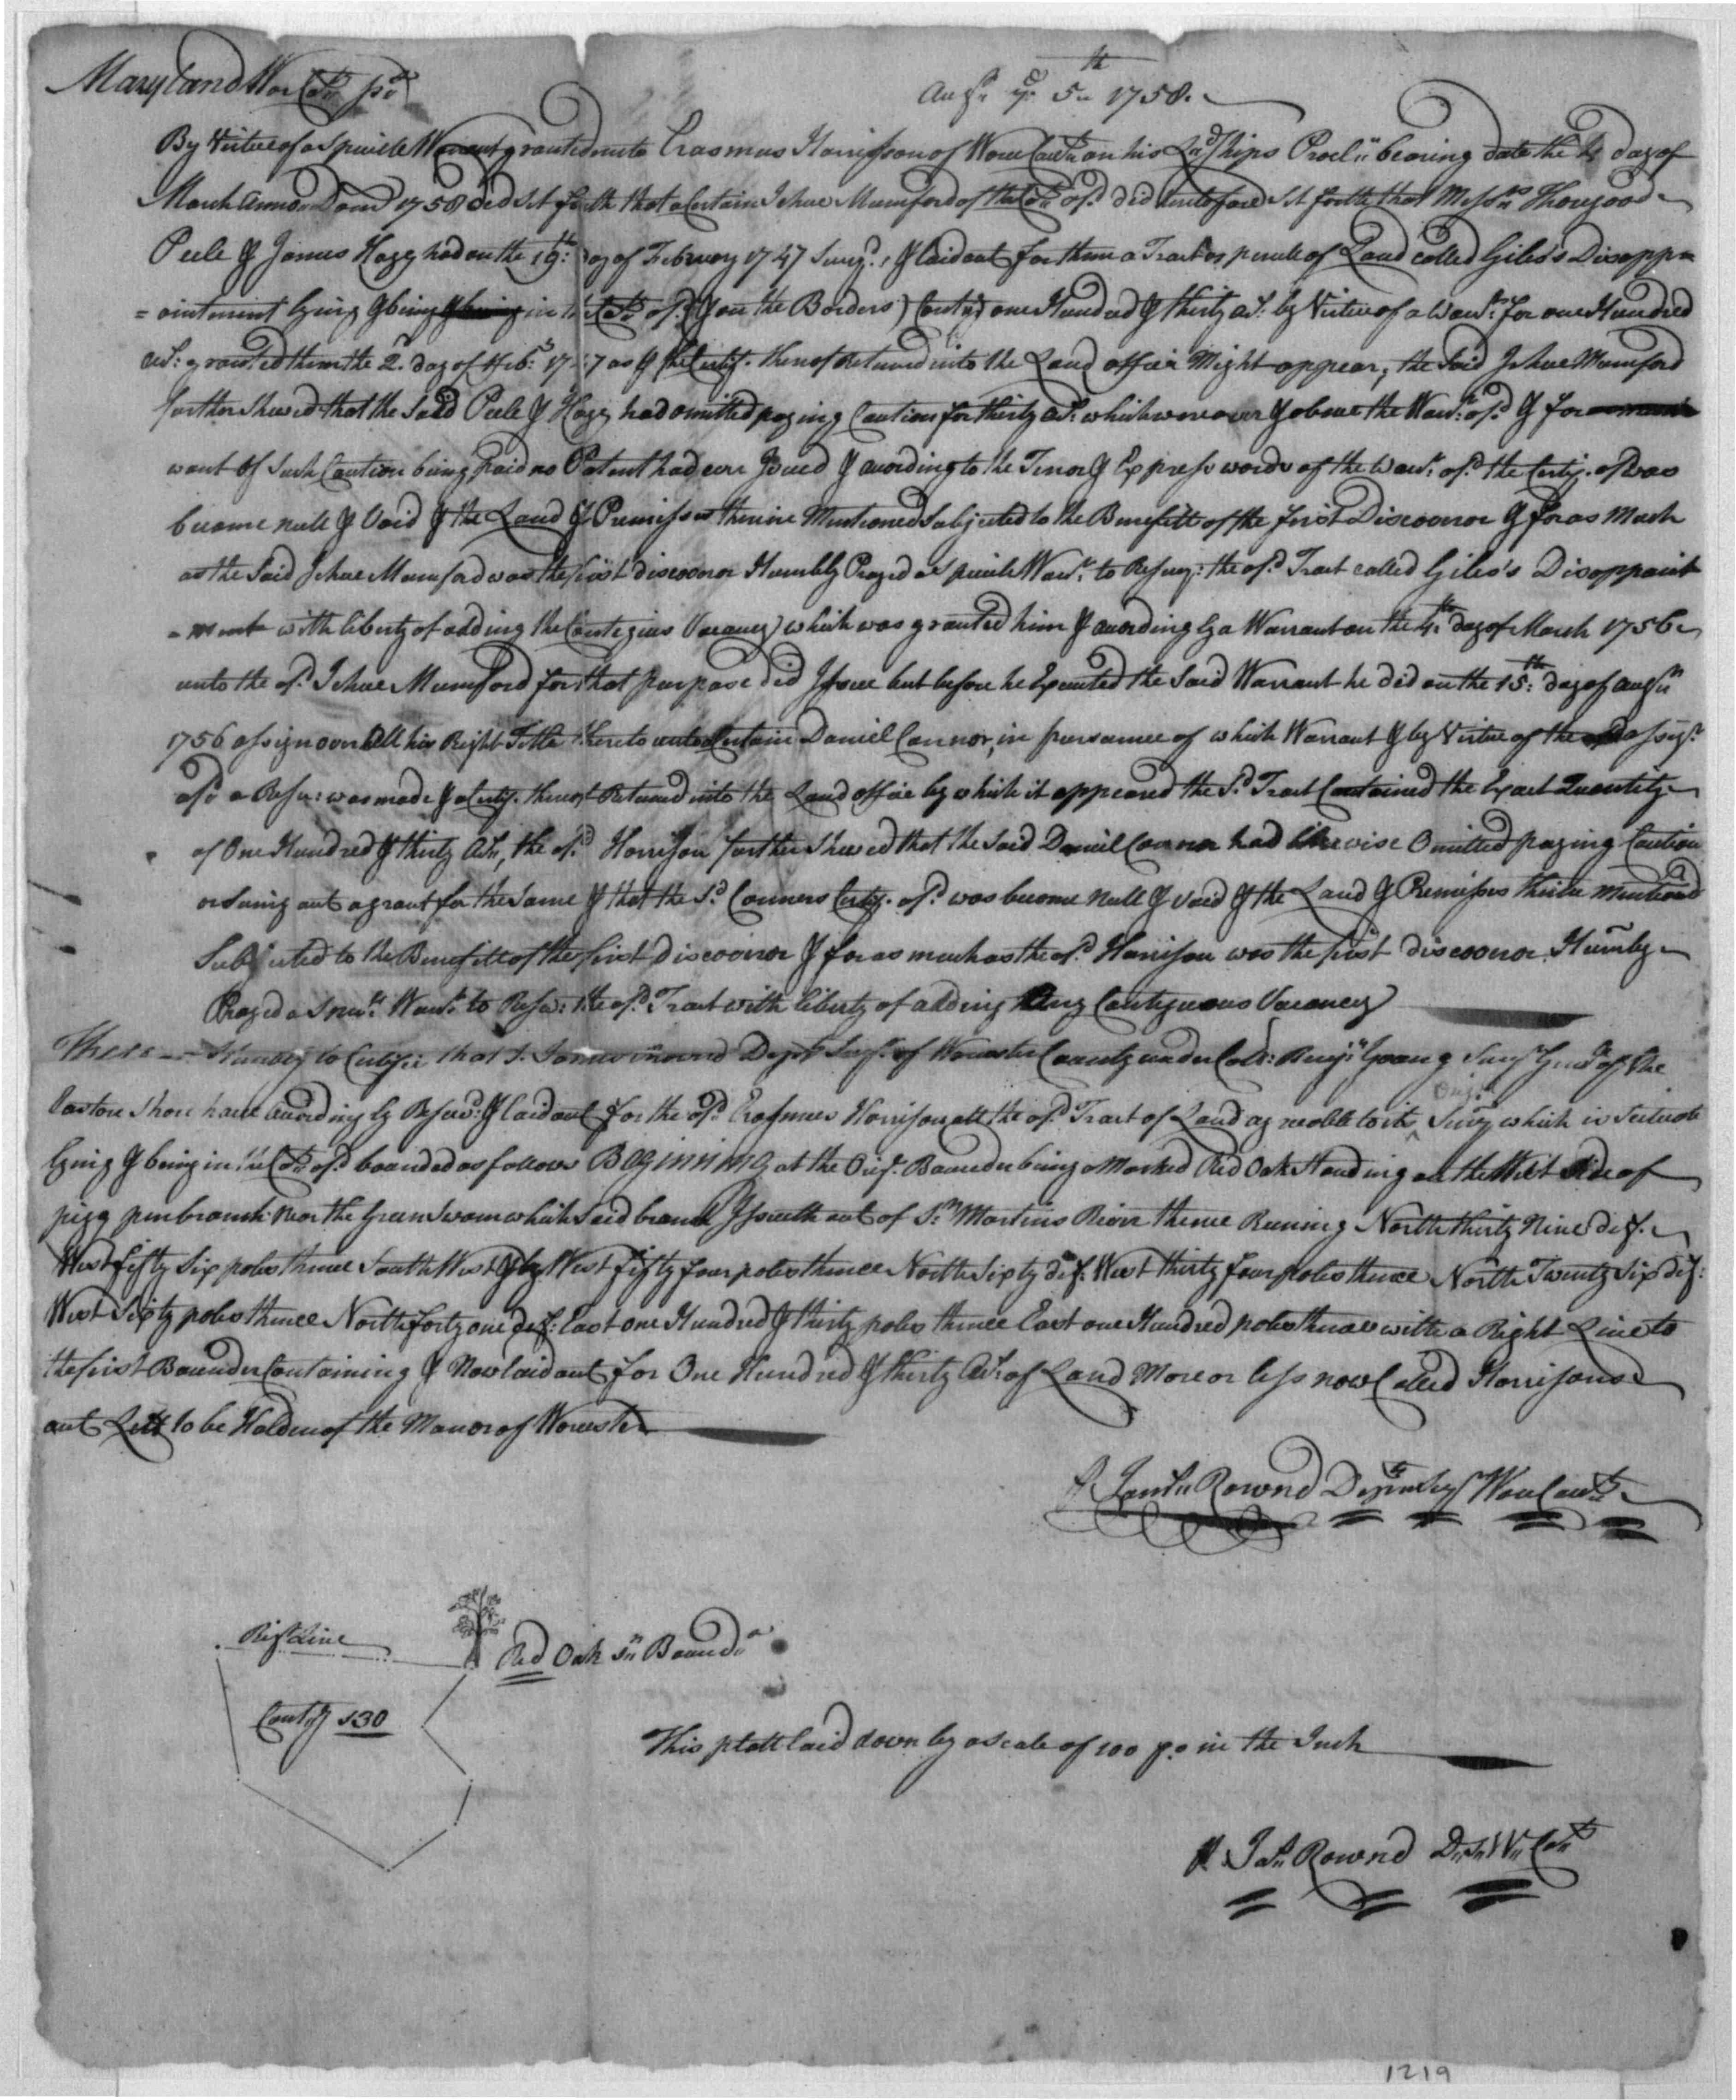 Maryland Wor Coty ss
Augst ye 5th 1758.
By Virtue of a Speciale Warrant granted unto Erasmus Harrisson of Wor County on his Ldships Procl: bearing date the 4 day of
March Anno Dom 1758 did set forth that a Certain Jehue Mumford of the Coty afsd did heretofore set forth that Messrs Thorgood
Peele & James Hagg had on the 19th: day of Febuory 1747 Survd., & laid out for them a Tract or parcele of Land called Giles's Disopp
= ointment lying & being in the Coty afsd. (& on the Borders) Contg one Hundred & thirty as. by Virtue of a Wart. for one Hundred
as: granted them the 2d. day of Feb. 1747 as & the Certif. thereof Returned into the Land office Might appear, the said Jehue Mumford
further Shewed that the said Peele & Hagg had omitted paying Caution for thirty as: which were over & above the Wart: afsd & for
want of Such Caution being paid no Patent had ever Issued & according to the Tenor & Express words of the Wart. afsd the Certif. afsd was
become null & Void & the Land & Premisses therein Mentioned Subjected to the Benefitt of the first Discoveror & for as Much
as the Said Jehue Mumford was the first discoveror Humbly Prayed a Speciale Wart. to Resury: the afsd Tract called Giles's Disoppoint
-ment with liberty of adding the Contegius Vacancy) which was granted him & accordingly a Warrant on the 4th. day of March 1756
unto the afsd. Jehue Mumford for that purpose did Issue but before he Executed the Said Warrant he did on the 15th: day of Augst
1756 assign over All his Right Title thereto unto a Certain Daniel Connor, in pursuance of which Warrant & by Virtue of the assigt.
afsd a Resur: was made & a Certif. thereof Returned into the Land office by which it appeared the sd. Tract Contained the Exact Quantity
of One Hundred & thirty As, the afsd Harrison further Shewed that the Said Daniel Connor had likewise Omitted paying Caution
or Suing out a grant for the Same & that the sd. Conners Certif. afsd. was become null & void & the Land & Premisses therein Mentioned
Subjected to the Benefitt of the first Discoveror & for as much as the afsd. Harrison was the first discoveror Humbly
Prayed a Special Wart. to Resur: the afsd. Tract with liberty of adding any Contiguous Vacancy
These - - - Humbly to Certifie that I James Rownd Depty Survr. of Worcester County under Colo: Benjn Young Survr Genl of the
Eastern Shore have accordingly Resurvd. & laid out for the afsd. Erasmus Harrison all the afsd. Tract of Land agreeable to its Origl. Survy which is Scituate
lying & being in the Coty afsd bounded as follows BEGINNING at the Orig. Bounder being a Marked Red Oak Standing on the West Side of
pigg pen branch Near the Green Swam which said branch Issueth out of St Martins River thence Runing North thirty Nine deg.
West fifty Six poles thence South West & by West fifty four poles thence North Sixty deg. West thirty four poles thence North Twenty Six deg:
West Sixty poles thence North forty one deg: East one Hundred & thirty poles thence East one Hundred poles thence with a Right Line to
the first Bounder Containing & Now laid out for One Hundred & thirty As: of Land More or less now Called Harrisons
out Lett to be Holden of the Manor of Worcester
P. James Rownd Depty Sur Wor County
Rigt Line
Red Oak 1st Boundr
Contg 130
This platt laid down by a scale of 100 ps in the Inch
P. Jas Rownd D. S. W. Coty
1219